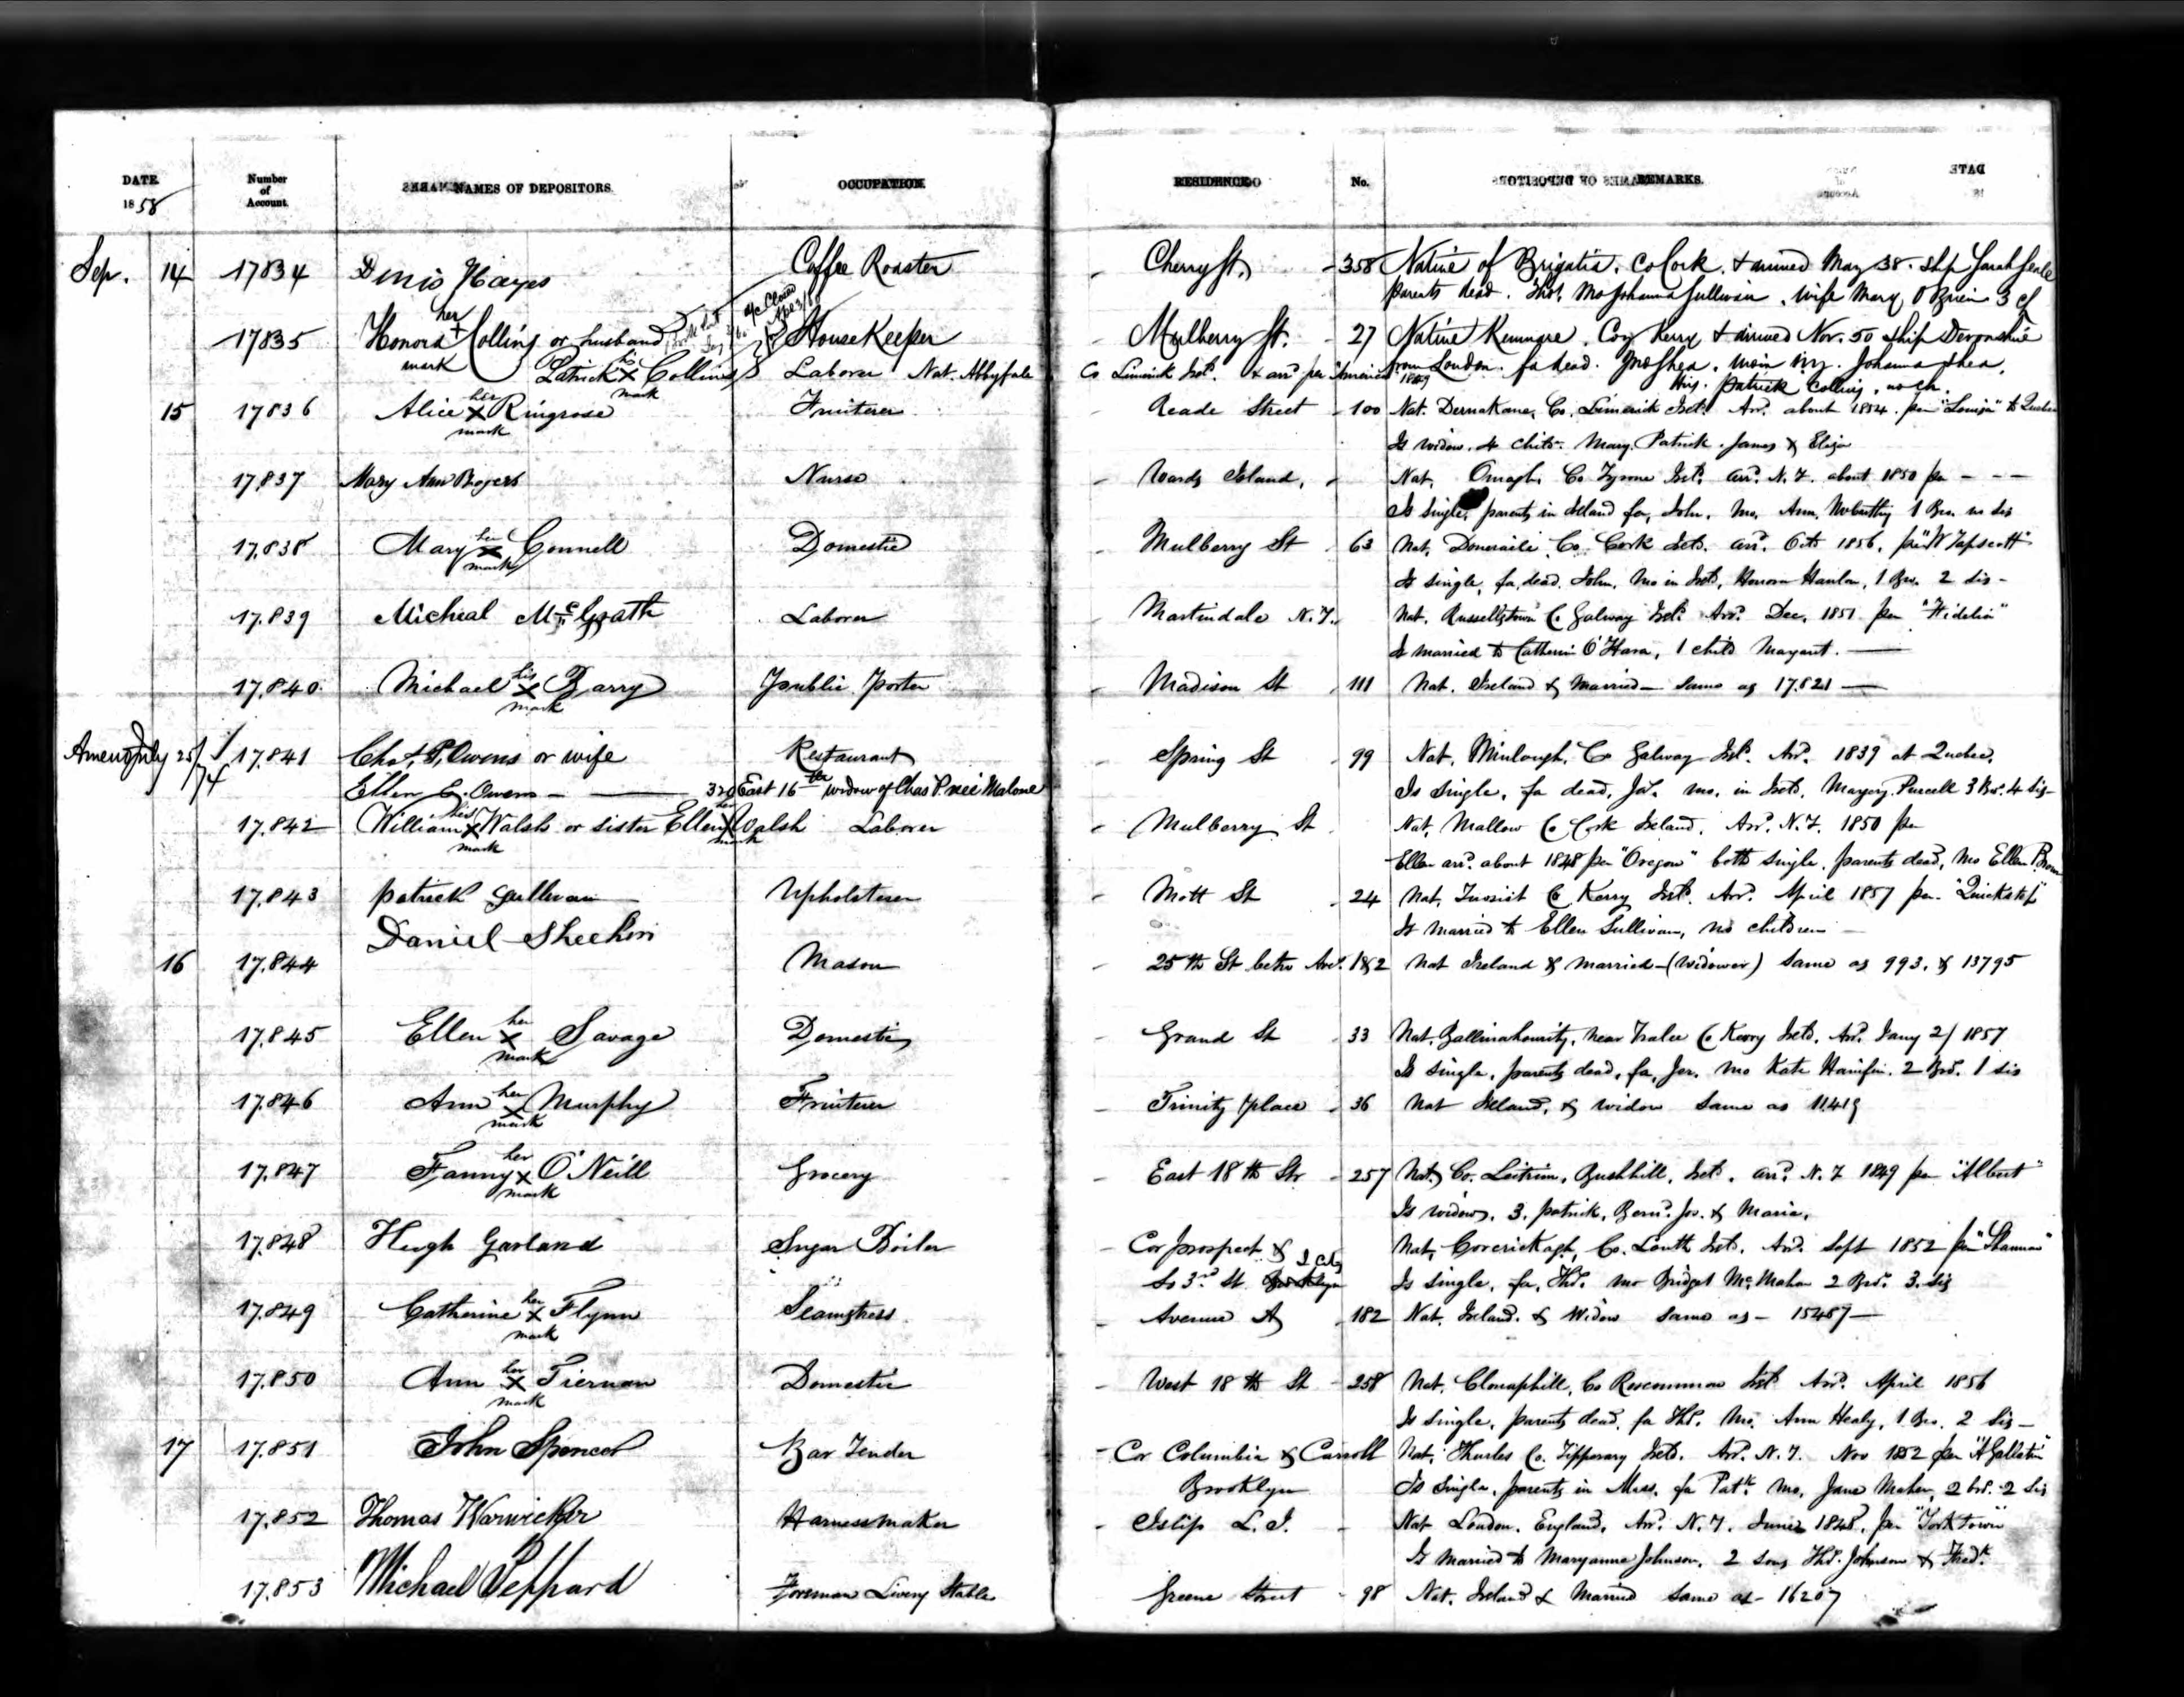 DATE
1858
Number
of
Account.
NAMES OF DEPOSITORS.
OCCUPATION.
RESIDENCE
No.
REMARKS.
Sep. 14 17834 Denis Hayes Coffee Roaster Cherry St. 358 Native of Co Cork & arrived May 38. Ship Sarah
parents dead. Thos. Mo Johanna Sullivan, wife Mary O'Brien 3 ch
17835 Honora her + mark Collins or husband House Keeper Mulberry St. 27 Native Kenmare, Coy Kerry & arrived Nov. 50 Ship Devonshire
Patrick his x mark Collins Laborer Nat. Abbyfale Co Limerick Ireld. & arr. per "America" 1849 from London. fa dead. Shea, Johanna Shea,
Patrick Collins, no ch.
15 17836 Alice her x mark Ringrose Fruiterer Reade Street 100 Nat. Co. Limerick Ireld. Arr. about 1854 per "Louisa" to Quebec
Is widow. 4 child. Mary, Patrick, James & Eliza
17,837 Mary Ann Rogers Nurse Wards Island, Nat. Omagh, Co Tyrone Ireld. arr. N.Y. about 1850 per - - -
Is single, parents in Ireland fa, John, Mo. Ann McCarthy 1 Bro. no sis
17,838 Mary her x mark Connell Domestic Mulberry St 63 Nat. Doneraile Co. Cork Ireld. arr. Octo 1856, per "W Tapscott"
Is single, fa, dead, John, Mo in Ireld, Honora Hanlon, 1 Bro. 2 sis -
17,839 Micheal McGrath Laborer Martindale N.Y. Nat. Russellstown Co Galway Ireld. Arr. Dec. 1851 per "Fidelia"
Is married to Catherin O'Hara, 1 child Margaret. —
17,840 Michael his x mark Barry Public Porter Madison St 111 Nat. Ireland & Married — Same as 17,821 —
Amend July 25/74 17,841 Chas. P. Owens or wife Restaurant Spring St 99 Nat. Co Galway Ireld. Arr. 1839 at Quebec.
Ellen G. Owens — 320 East 16th widow of Chas P. nee Malone Is Single, fa dead, Jas. mo. in Ireld, Margery Purcell 3 Bro. 4 Sis —
17,842 William his x mark Walsh or sister Ellen her x mark Walsh Laborer Mulberry St Nat. Mallow Co Cork Ireland. Arr. N.Y. 1850 per
Ellen arr. about 1848 per "Oregon" both single, parents dead, Mo Ellen
17,843 Patrick Sullivan Upholsterer Mott St 24 Nat. Co Kerry Ireld. Arr. April 1857 per "Quickstep"
Is married to Ellen Sullivan, no children —
16 17,844 Daniel Sheehan Mason 25th St betw Aves. 1&2 Nat Ireland & Married — (Widower) Same as 993. & 13795
17,845 Ellen her x mark Savage Domestic Grand St 33 Nat. near Tralee Co Kerry Ireld. Arr. Jany 2/ 1857
Is single, parents dead, fa, Jer. mo Kate Hanifin. 2 Bro. 1 sis
17,846 Ann her x mark Murphy Fruiterer Trinity Place 36 Nat Ireland, & widow Same as 11,419
17,847 Fanny her x mark O'Neill Grocery East 18th Str 257 Nat. Co. Leitrim, Rushhill, Ireld. arr. N.Y 1849 per "Albert"
Is widow, 3. Patrick, Bern. Jos. & Maria.
17,848 Hugh Garland Sugar Boiler Cor Prospect & Nat. Co. Louth Ireld. Arr. Sept 1852 per "Shannon"
So 3rd St Brooklyn J City Is single, fa, Thos. mo Bridget McMahon 2 Bro. 3. sis
17,849 Catherine her x mark Flynn Seamstress Avenue A 182 Nat. Ireland. & Widow Same as — 15487 —
17,850 Ann her x mark Tiernan Domestic West 18th St 258 Nat. Co Roscommon Ireld Arr. April 1856
Is single, parents dead. fa Thos. Mo. Ann Healy, 1 Bro. 2 Sis —
17 17,851 John Spencer Bar Tender Cor Columbia & Carroll Nat. Thurles Co. Tipperary Ireld. Arr. N.Y. Nov 1852 per "A Gallatin"
Brooklyn Is Single, Parents in Mass. fa Patk. Mo. Jane Maher, 2 bro. 2 sis
17,852 Thomas Warwicker Harness maker Islip L.I. Nat London, England, Arr. N.Y. June 1848, per "York town"
Is Married to Maryanne Johnson, 2 sons Thos. Johnson & Fredk.
17,853 Michael Peppard Foreman Livery Stable Greene Street 98 Nat. Ireland & Married Same as — 16207